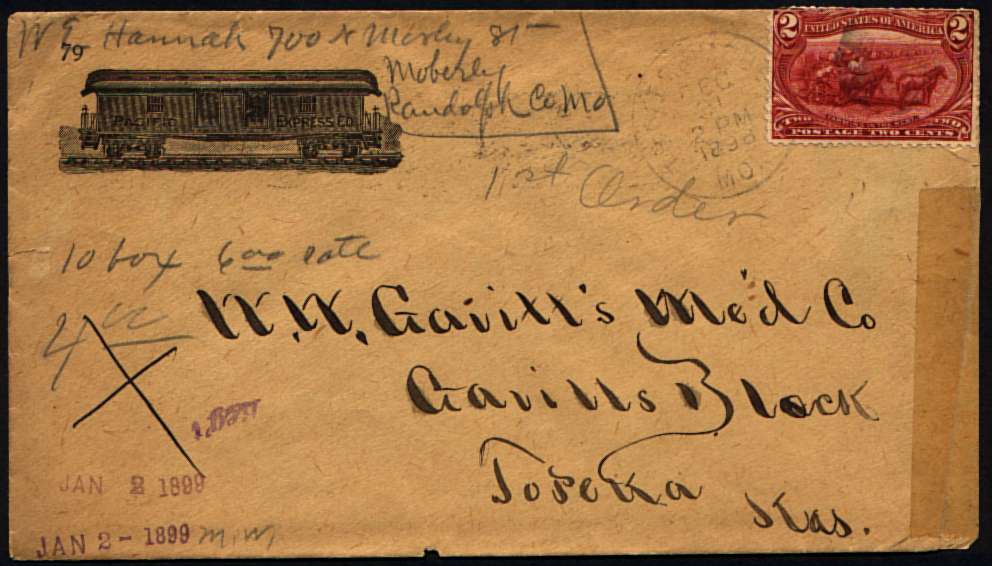 W E Hannah 700 N Morley St
79
Moberly
Randolph Co. Mo
PACIFIC EXPRESS CO.
2 UNITED STATES OF AMERICA 2
TWO TWO
POSTAGE TWO CENTS
DEC
31
2 PM
MO.
1st Order
10 box 600 rate
4
W.W. Gavitt's Med Co
Gavitts Block
Topeka
Kas.
JAN 2 1899
JAN 2 - 1899 M.W.